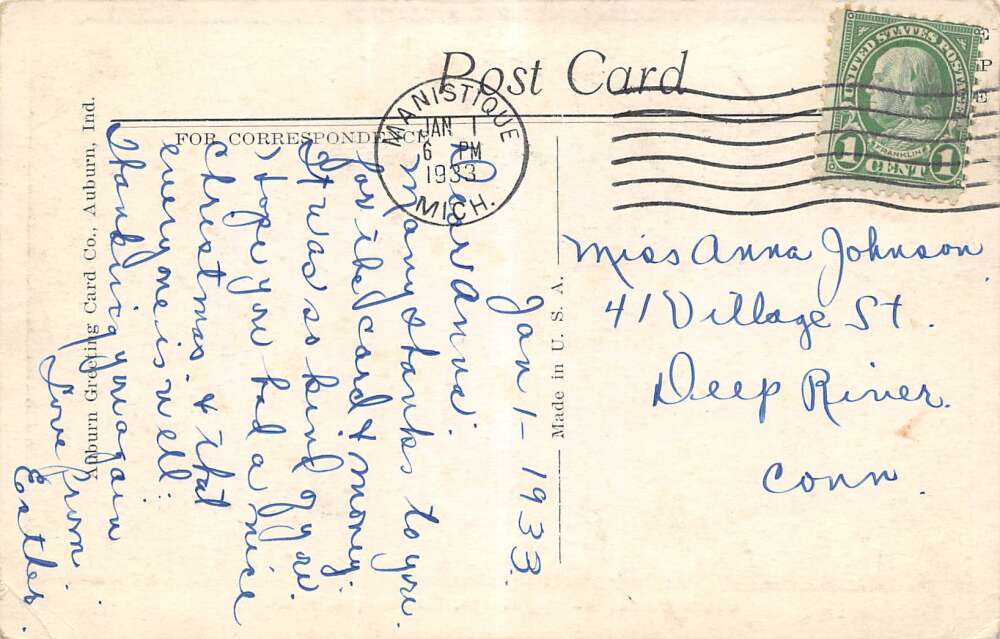 Post Card
FOR CORRESPONDENCE
MANISTIQUE
JAN 1
6 PM
1933
MICH.
UNITED STATES POSTAGE
FRANKLIN
1 CENT 1
Miss Anna Johnson
41 Village St.
Deep River.
Conn.
Jan 1 - 1933.
Dear Anna:
Many thanks to you.
for the card & money.
It was so kind of you.
I hope you had a nice
Christmas. & that
every one is well.
Thanking you again
Love from
Esther.
Made in U. S. A.
Auburn Greeting Card Co., Auburn, Ind.